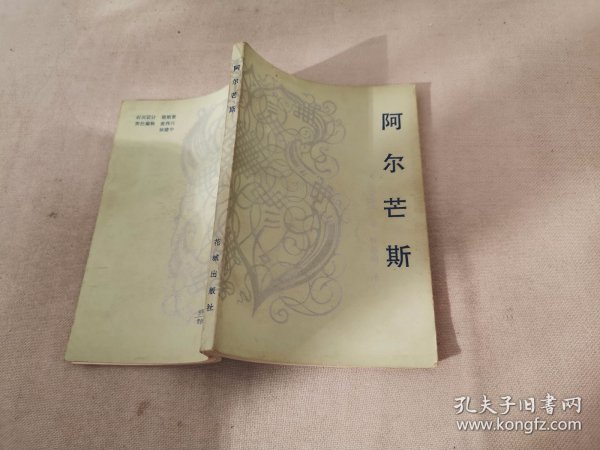 阿尔芒斯
阿尔芒斯
花城出版社
封面设计
责任编辑
孔夫子旧书网
www.kongfz.com